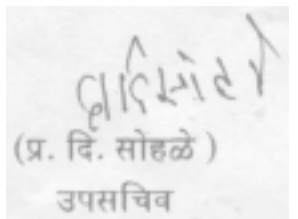 (प्र. दि. सोहळे )
उपसचिव